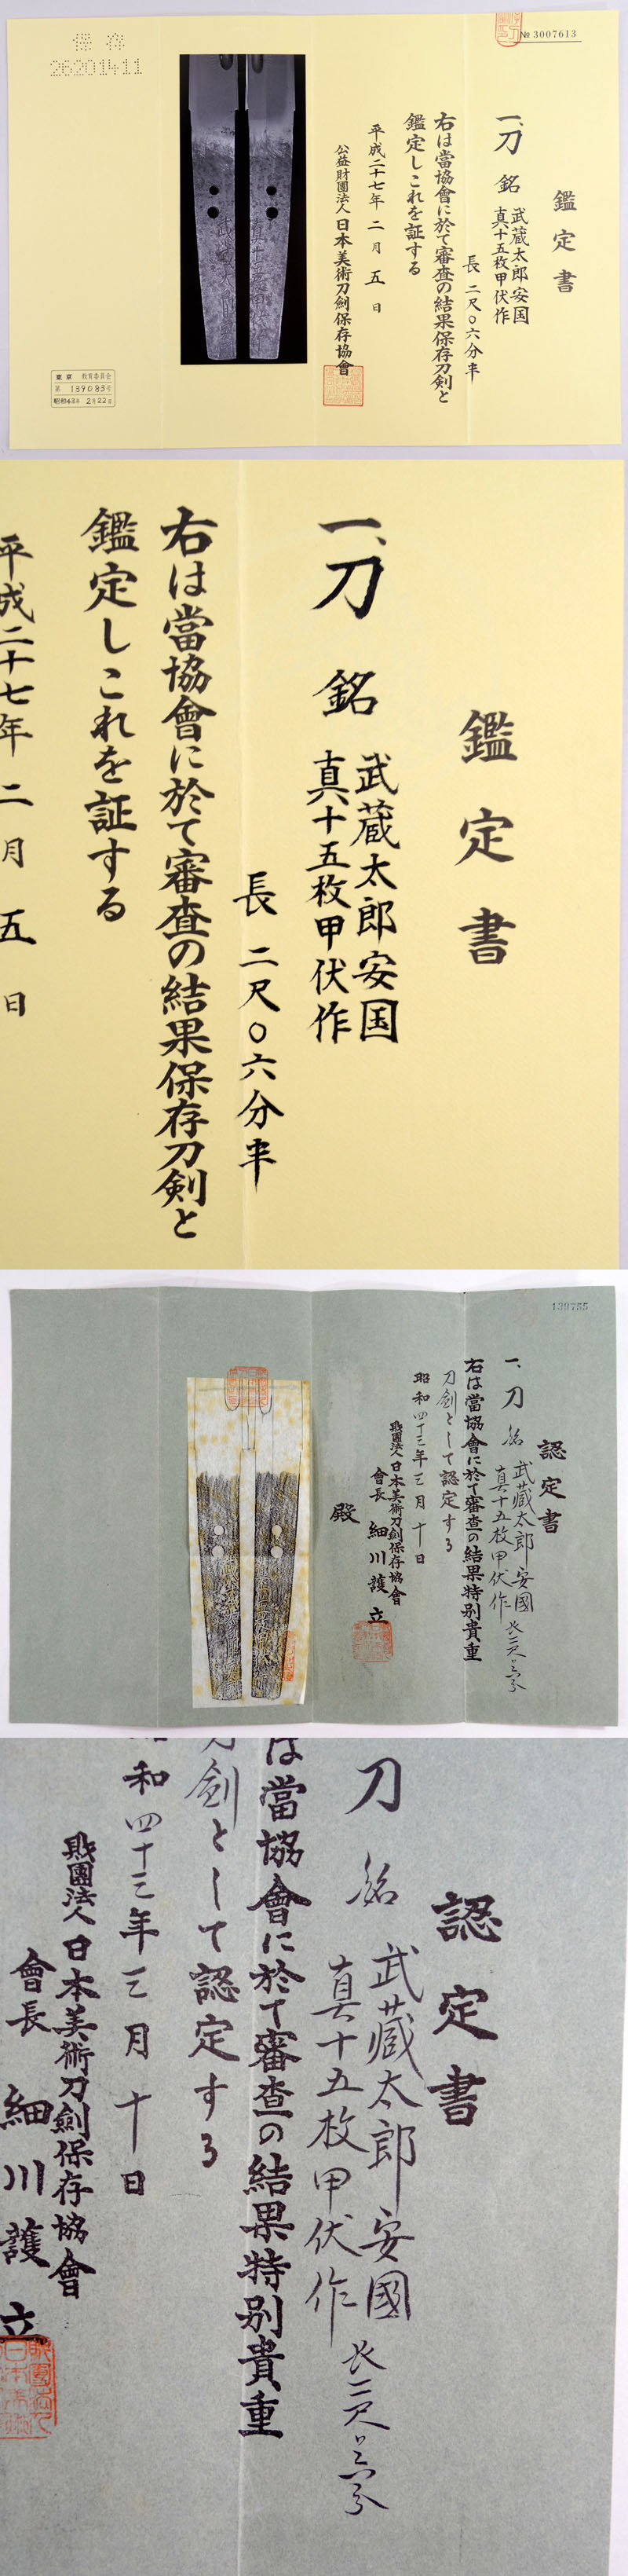 № 3007613
鑑定書
一、刀 銘 武蔵太郎安国
真十五枚甲伏作
長 二尺〇六分半
右は當協會に於て審査の結果保存刀劍と
鑑定しこれを証する
平成二十七年 二月 五日
公益財團法人 日本美術刀劍保存協會
保存
26201411
東京 教育委員会
第 139083号
昭和43年 2月22日
鑑定書
一、刀 銘 武蔵太郎安国
真十五枚甲伏作
長 二尺〇六分半
右は當協會に於て審査の結果保存刀劍と
鑑定しこれを証する
平成二十七年 二月 五日
139755
認定書
一、刀 銘 武藏太郎安國
真十五枚甲伏作
右は當協會に於て審査の結果特別貴重
刀劍として認定する
昭和四十三年三月十日
財團法人 日本美術刀劍保存協會
會長 細川護立
殿
認定書
刀 銘 武藏太郎安國
真十五枚甲伏作
は當協會に於て審査の結果特別貴重
刀劍として認定する
昭和四十三年三月十日
財團法人 日本美術刀劍保存協會
會長 細川護立